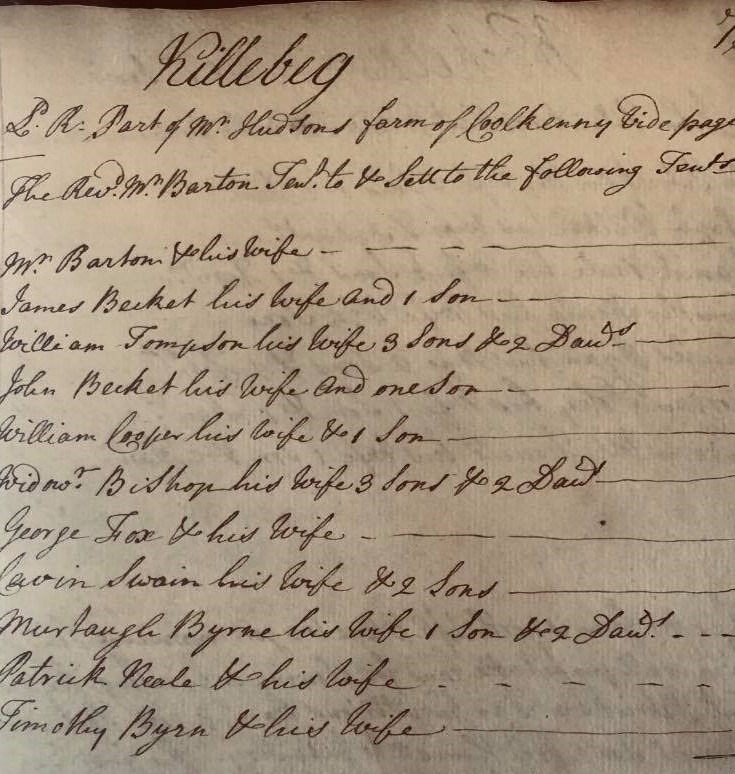 Killebeg
L. R: Part of Mr Hudsons farm of Coolkenny Vide page
The Revd. Mr Barton Tent. to & Sett to the following Tents
Mr Barton & his Wife
James Becket his Wife and 1 Son
William Tompson his Wife 3 Sons & 2 Dau's
John Becket his Wife and one Son
William Cooper his Wife & 1 Son
Widowr Bishop his Wife 3 Sons & 2 Daus
George Fox & his Wife
Cavin Swain his Wife & 2 Sons
Murtaugh Byrne his Wife 1 Son & 2 Daus.
Patrick Neale & his Wife
Timothy Byrn & his Wife